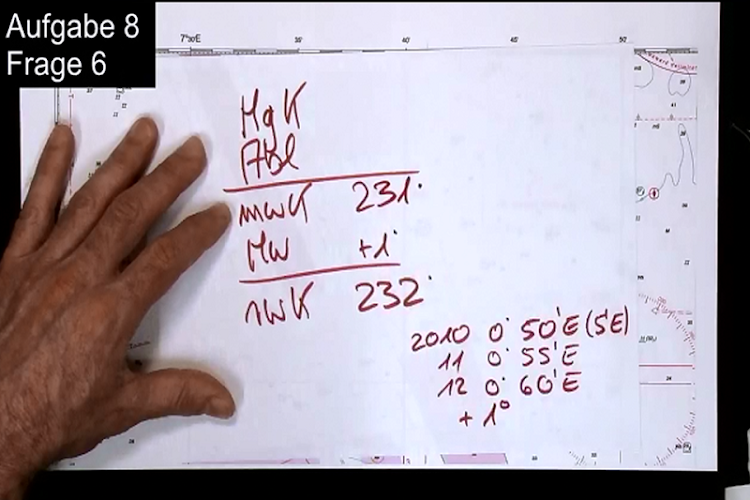 Aufgabe 8
Frage 6
7°30'E
35'
40'
45'
50'
MgK
Abl
mwK 231°
Mw +1°
rwK 232°
2010 0° 50'E (5'E)
11 0° 55'E
12 0° 60'E
+ 1°